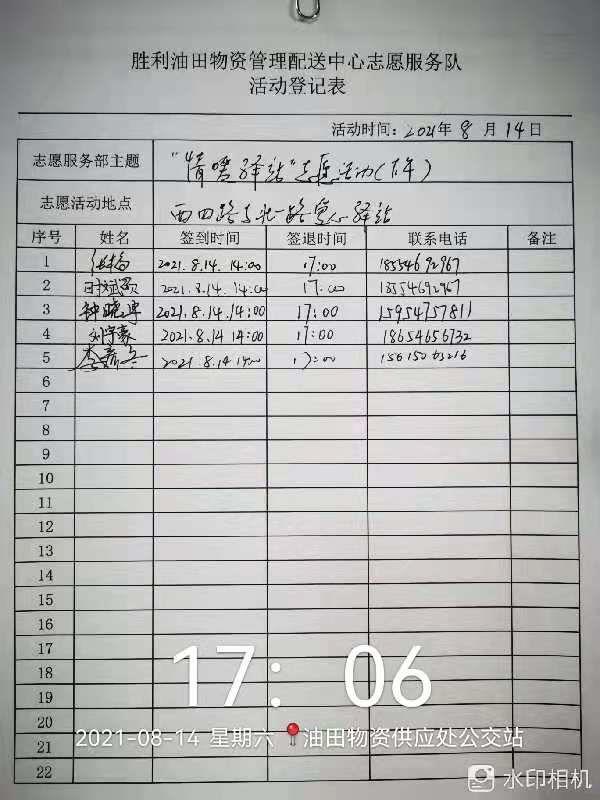 胜利油田物资管理配送中心志愿服务队
活动登记表
活动时间：2021年 8 月 14 日
志愿服务部主题 "情暖驿站"志愿活动（下午）
志愿活动地点 西四路与北一路 驿站
序号 姓名 签到时间 签退时间 联系电话 备注
1 2021.8.14. 14:00 17:00 18554692967
2 2021.8.14. 14:00 17:00
3 钟晓宇 2021.8.14. 14:00 17:00 15954757811
4 刘宇豪 2021.8.14 14:00 17:00 18654656732
5 2021.8.14 14:00 17:00
6
7
8
9
10
11
12
13
14
15
16
17
18
19
20
21
22
17：06
2021-08-14 星期六 油田物资供应处公交站
水印相机